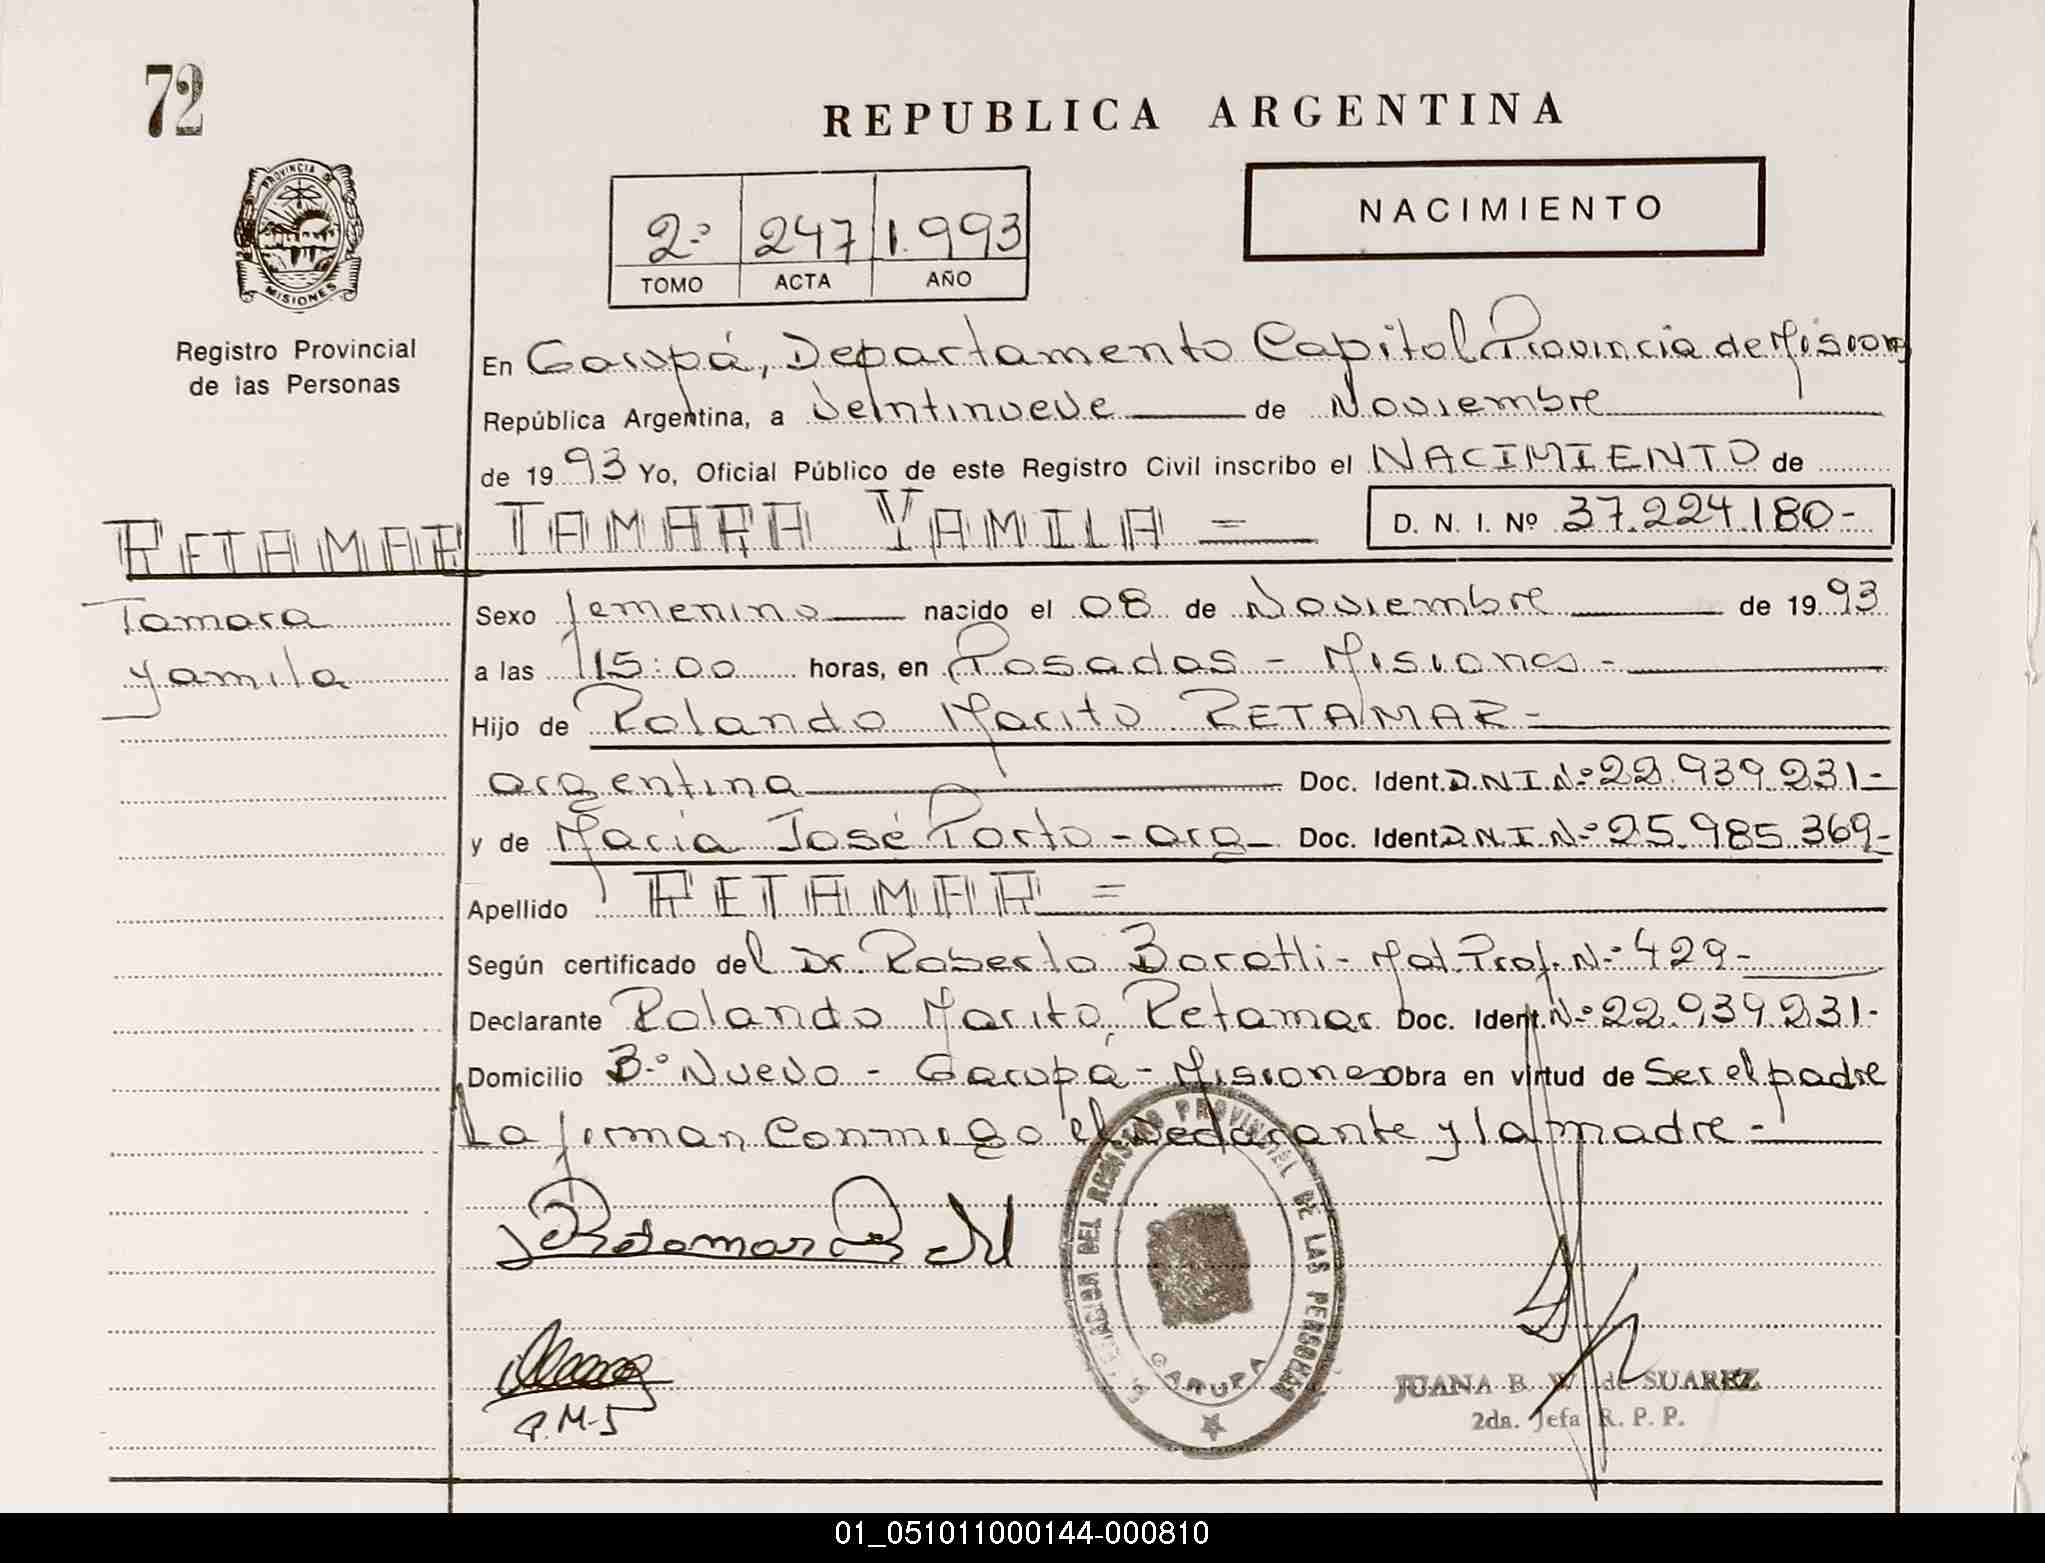 72
REPUBLICA ARGENTINA
PROVINCIA DE
MISIONES
Registro Provincial
de las Personas
2º 247 1.993
TOMO ACTA AÑO
NACIMIENTO
En Garupá, Departamento Capital Provincia de Misiones
República Argentina, a Veintinueve de Noviembre
de 1993 Yo, Oficial Público de este Registro Civil inscribo el NACIMIENTO de
RETAMAR TAMARA YAMILA = D. N. I. Nº 37.224.180-
Tamara
Yamila
Sexo femenino nacido el 08 de Noviembre de 1993
a las 15:00 horas, en Posadas - Misiones -
Hijo de Rolando Marito RETAMAR -
argentina Doc. Ident. D.N.I.Nº 22.939.231-
y de María José Porto - arg - Doc. Ident D.N.I.Nº 25.985.369-
Apellido RETAMAR =
Según certificado del Dr. Roberto - Mat. Prof. Nº 429-
Declarante Rolando Marito Retamar Doc. Ident. Nº 22.939.231-
Domicilio Bº Nuevo - Garupá - Misiones Obra en virtud de Ser el padre
La firman Conmigo el Declarante y la madre -
Retamar R
P.M-J
DEL REGISTRO PROVINCIAL DE LAS PERSONAS
GARUPA
JUANA B. W. de SUAREZ
2da. Jefa R. P. P.
01_051011000144-000810